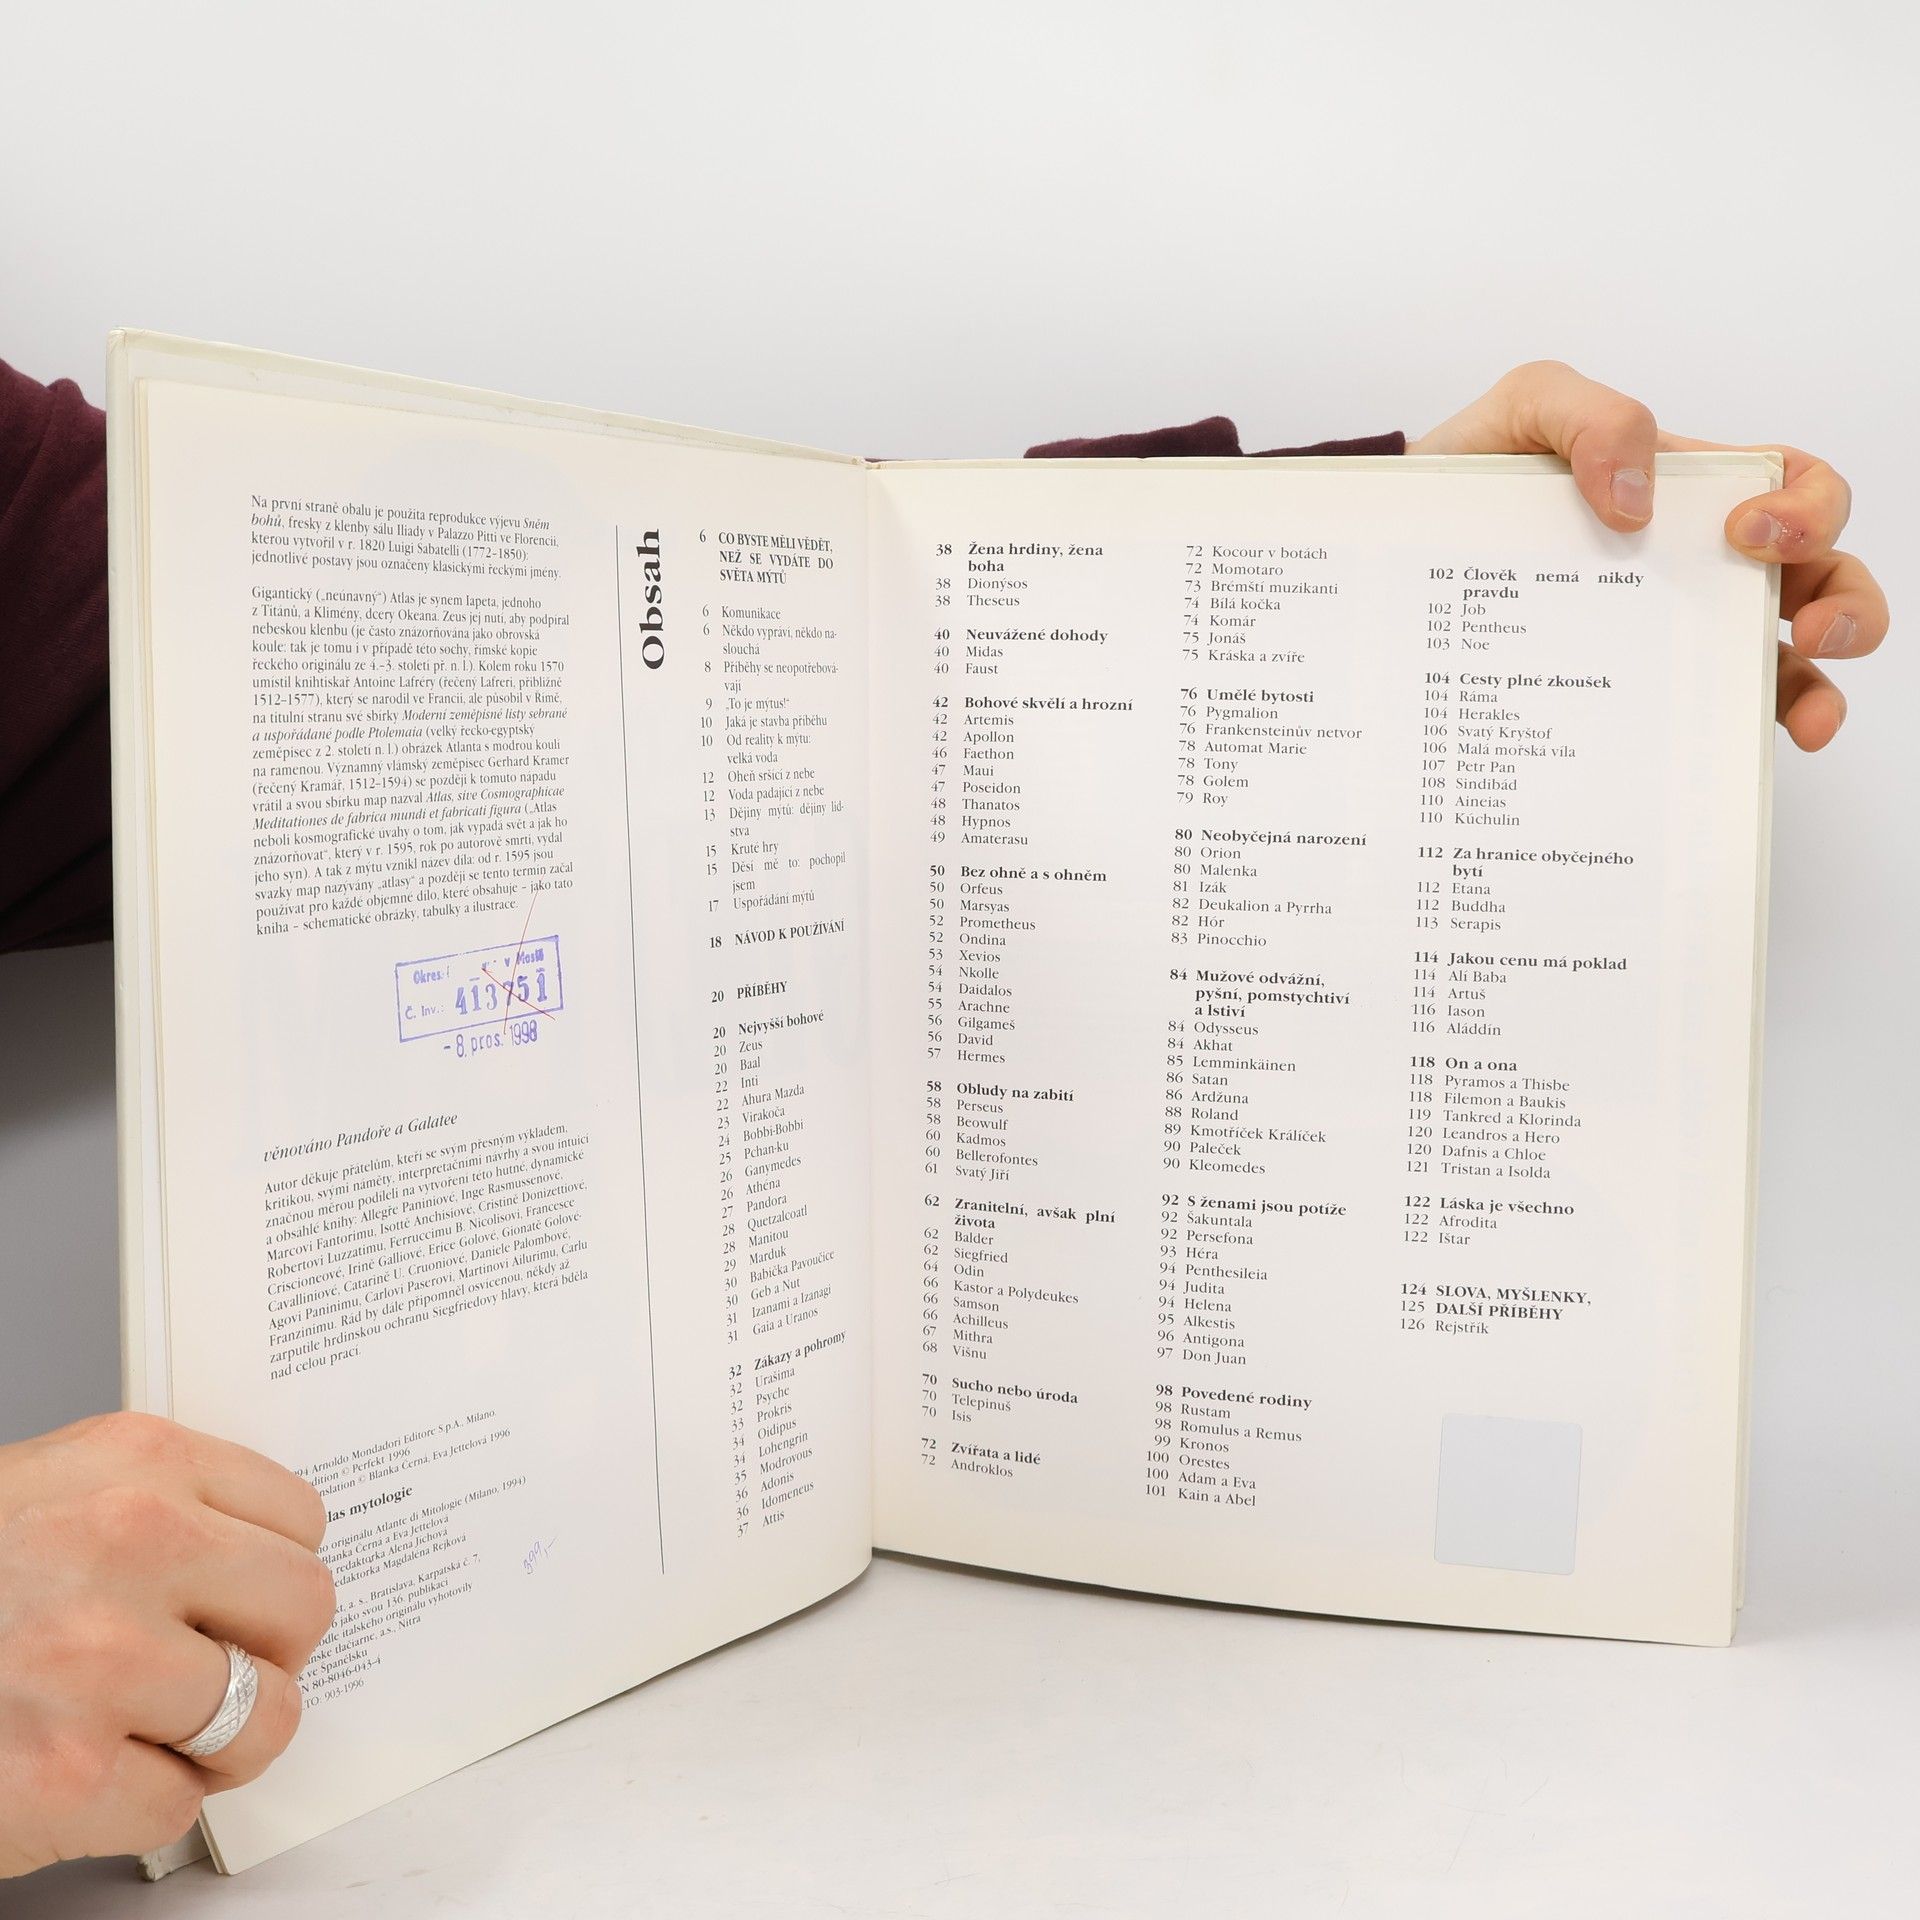 Na první straně obalu je použita reprodukce výjevu Sněm
bohů, fresky z klenby sálu Iliady v Palazzo Pitti ve Florencii,
kterou vytvořil v r. 1820 Luigi Sabatelli (1772–1850):
jednotlivé postavy jsou označeny klasickými řeckými jmény.
Gigantický („neúnavný“) Atlas je synem Iapeta, jednoho
z Titánů, a Klimény, dcery Okeana. Zeus jej nutí, aby podpíral
nebeskou klenbu (je často znázorňována jako obrovská
koule: tak je tomu i v případě této sochy, římské kopie
řeckého originálu ze 4.–3. století př. n. l.). Kolem roku 1570
umístil knihtiskař Antoine Lafréry (řečený Lafreri, přibližně
1512–1577), který se narodil ve Francii, ale působil v Římě,
na titulní stranu své sbírky Moderní zeměpisné listy sebrané
a uspořádané podle Ptolemaia (velký řecko-egyptský
zeměpisec z 2. století n. l.) obrázek Atlanta s modrou koulí
na ramenou. Významný vlámský zeměpisec Gerhard Kramer
(řečený Kramář, 1512–1594) se později k tomuto nápadu
vrátil a svou sbírku map nazval Atlas, sive Cosmographicae
Meditationes de fabrica mundi et fabricati figura („Atlas
neboli kosmografické úvahy o tom, jak vypadá svět a jak ho
znázorňovat“, který v r. 1595, rok po autorově smrti, vydal
jeho syn). A tak z mýtu vznikl název díla: od r. 1595 jsou
svazky map nazývány „atlasy“ a později se tento termín začal
používat pro každé objemné dílo, které obsahuje – jako tato
kniha – schematické obrázky, tabulky a ilustrace.
Okres. v Mostě
Č. Inv.: 413751
- 8. pros. 1998
věnováno Pandoře a Galatee
Autor děkuje přátelům, kteří se svým přesným výkladem,
kritikou, svými náměty, interpretačními návrhy a svou intuicí
značnou měrou podíleli na vytvoření této hutné, dynamické
a obsáhlé knihy: Allegře Paniniové, Inge Rasmussenové,
Marcovi Fantorimu, Isottě Anchisiové, Cristině Donizettiové,
Robertovi Luzzatimu, Ferruccimu B. Nicolisovi, Francesce
Criscioneové, Irině Galliové, Erice Golové, Gionatě Golové-
Cavalliniové, Catarině U. Cruoniové, Daniele Palombové,
Agovi Paninimu, Carlovi Paserovi, Martinovi Ailurimu, Carlu
Franzinimu. Rád by dále připomněl osvícenou, někdy až
zarputile hrdinskou ochranu Siegfriedovy hlavy, která bděla
nad celou prací.
94 Arnoldo Mondadori Editore S.p.A., Milano.
dition © Perfekt 1996
nslation © Blanka Černá, Eva Jettelová 1996
las mytologie
ho originálu Atlante di Mitologie (Milano, 1994)
Blanka Černá a Eva Jettelová
redaktorka Alena Jichová
edaktorka Magdaléna Rejková
kt, a. s., Bratislava, Karpatská č. 7,
6 jako svou 136. publikaci
odle italského originálu vyhotovily
nske tlačiarne, a.s., Nitra
k ve Španělsku
N 80-8046-043-4
TO: 903-1996
399,-
Obsah
6 CO BYSTE MĚLI VĚDĚT,
NEŽ SE VYDÁTE DO
SVĚTA MÝTŮ
6 Komunikace
6 Někdo vypráví, někdo na-
slouchá
8 Příběhy se neopotřebová-
vají
9 „To je mýtus!“
10 Jaká je stavba příběhu
10 Od reality k mýtu:
velká voda
12 Oheň sršící z nebe
12 Voda padající z nebe
13 Dějiny mýtů: dějiny lid-
stva
15 Kruté hry
15 Děsí mě to: pochopil
jsem
17 Uspořádání mýtů
18 NÁVOD K POUŽÍVÁNÍ
20 PŘÍBĚHY
20 Nejvyšší bohové
20 Zeus
20 Baal
22 Inti
22 Ahura Mazda
23 Virakoča
24 Bobbi-Bobbi
25 Pchan-ku
26 Ganymedes
26 Athéna
27 Pandora
28 Quetzalcoatl
28 Manitou
29 Marduk
30 Babička Pavoučice
30 Geb a Nut
31 Izanami a Izanagi
31 Gaia a Uranos
32 Zákazy a pohromy
32 Urašima
32 Psyche
33 Prokris
34 Oidipus
34 Lohengrin
35 Modrovous
36 Adonis
36 Idomeneus
37 Attis
38 Žena hrdiny, žena
boha
38 Dionýsos
38 Theseus
40 Neuvážené dohody
40 Midas
40 Faust
42 Bohové skvělí a hrozní
42 Artemis
42 Apollon
46 Faethon
47 Maui
47 Poseidon
48 Thanatos
48 Hypnos
49 Amaterasu
50 Bez ohně a s ohněm
50 Orfeus
50 Marsyas
52 Prometheus
52 Ondina
53 Xevios
54 Nkolle
54 Daidalos
55 Arachne
56 Gilgameš
56 David
57 Hermes
58 Obludy na zabití
58 Perseus
58 Beowulf
60 Kadmos
60 Bellerofontes
61 Svatý Jiří
62 Zranitelní, avšak plní
života
62 Balder
62 Siegfried
64 Odin
66 Kastor a Polydeukes
66 Samson
66 Achilleus
67 Mithra
68 Višnu
70 Sucho nebo úroda
70 Telepinuš
70 Isis
72 Zvířata a lidé
72 Androklos
72 Kocour v botách
72 Momotaro
73 Brémští muzikanti
74 Bílá kočka
74 Komár
75 Jonáš
75 Kráska a zvíře
76 Umělé bytosti
76 Pygmalion
76 Frankensteinův netvor
78 Automat Marie
78 Tony
78 Golem
79 Roy
80 Neobyčejná narození
80 Orion
80 Malenka
81 Izák
82 Deukalion a Pyrrha
82 Hór
83 Pinocchio
84 Mužové odvážní,
pyšní, pomstychtiví
a lstiví
84 Odysseus
84 Akhat
85 Lemminkäinen
86 Satan
86 Ardžuna
88 Roland
89 Kmotříček Králíček
90 Paleček
90 Kleomedes
92 S ženami jsou potíže
92 Šakuntala
92 Persefona
93 Héra
94 Penthesileia
94 Judita
94 Helena
95 Alkestis
96 Antigona
97 Don Juan
98 Povedené rodiny
98 Rustam
98 Romulus a Remus
99 Kronos
100 Orestes
100 Adam a Eva
101 Kain a Abel
102 Člověk nemá nikdy
pravdu
102 Job
102 Pentheus
103 Noe
104 Cesty plné zkoušek
104 Ráma
104 Herakles
106 Svatý Kryštof
106 Malá mořská víla
107 Petr Pan
108 Sindibád
110 Aineias
110 Kúchulin
112 Za hranice obyčejného
bytí
112 Etana
112 Buddha
113 Serapis
114 Jakou cenu má poklad
114 Alí Baba
114 Artuš
116 Iason
116 Aláddín
118 On a ona
118 Pyramos a Thisbe
118 Filemon a Baukis
119 Tankred a Klorinda
120 Leandros a Hero
120 Dafnis a Chloe
121 Tristan a Isolda
122 Láska je všechno
122 Afrodita
122 Ištar
124 SLOVA, MYŠLENKY,
125 DALŠÍ PŘÍBĚHY
126 Rejstřík